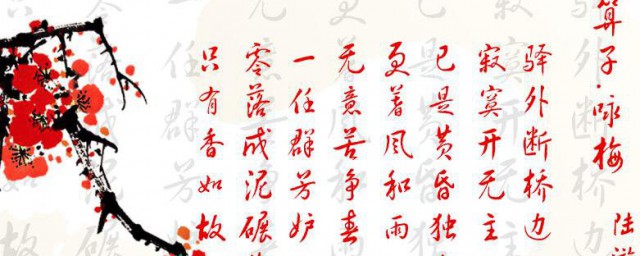 算子·咏梅
陆游
驿外断桥边
寂寞开无主
已是黄昏独
更着风和雨
无意苦争春
一任群芳妒
零落成泥碾
只有香如故